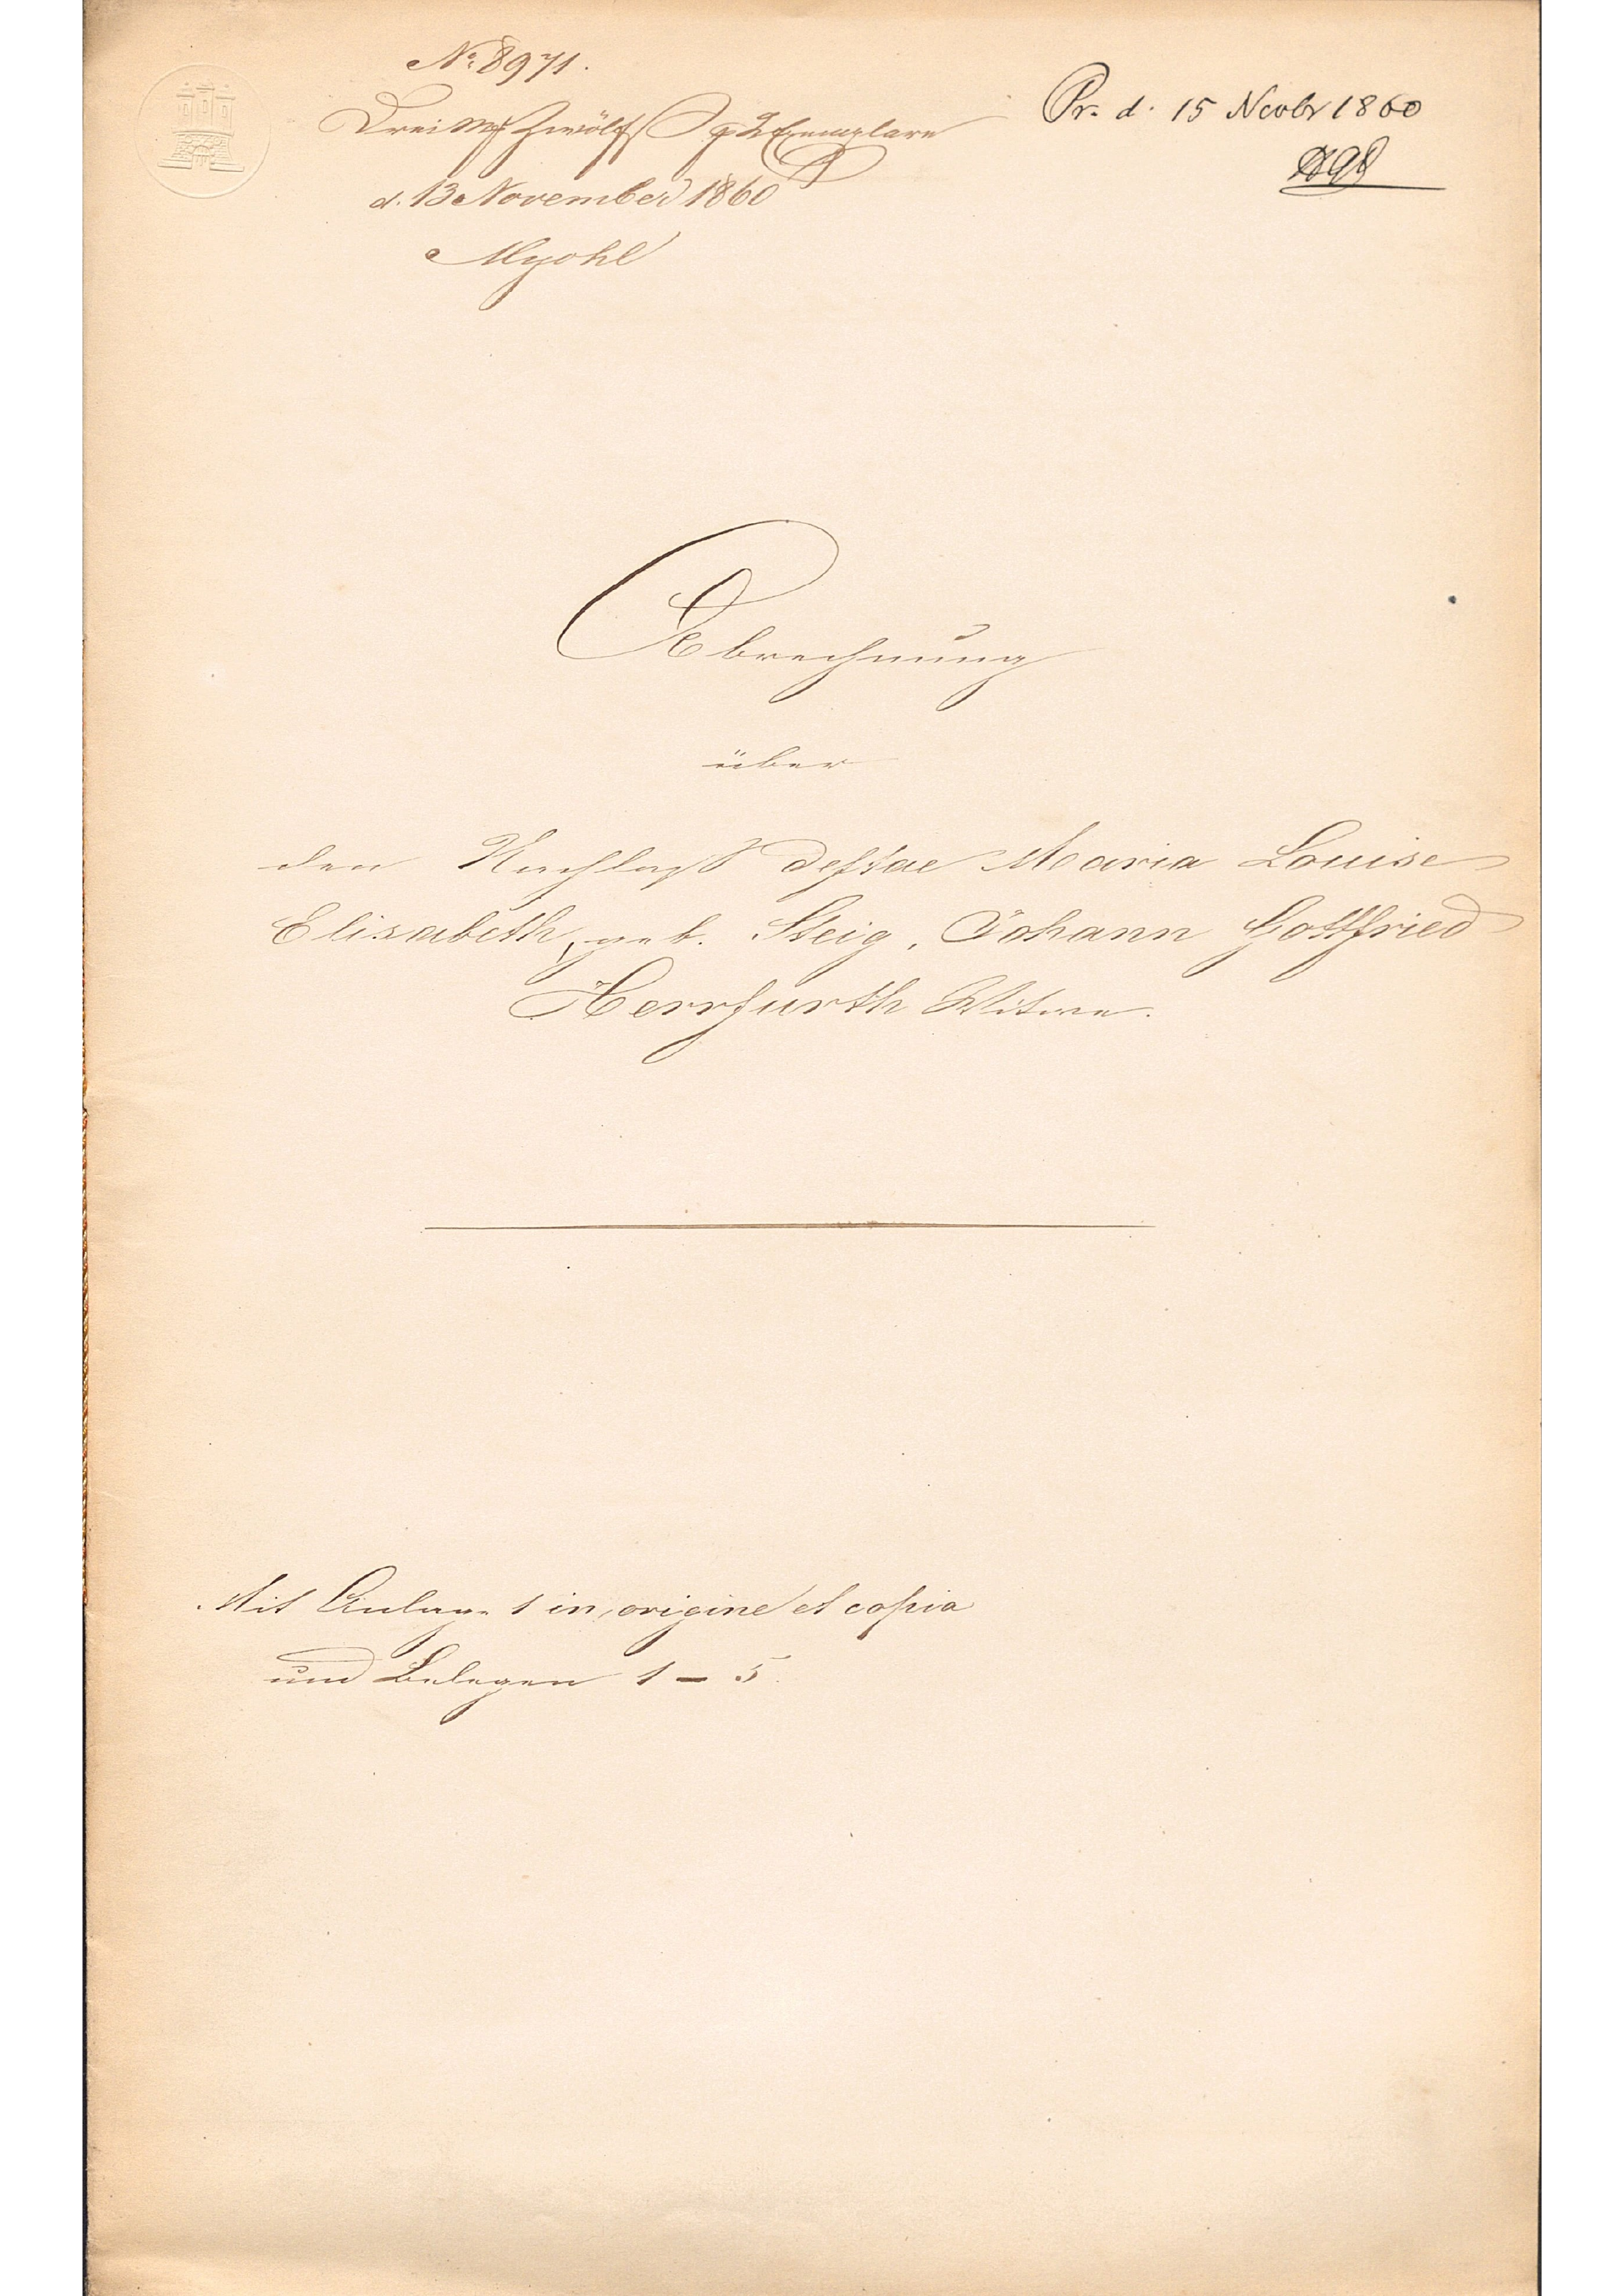 No. 8971.
Drei M Zwölf S 2 Exemplare
d. 13 November 1860
Pr. d. 15 Novbr 1860
Abrechnung
über
den Nachlaß defstae Maria Louise
Elisabeth, geb. Steig, Johann Gottfried
Herrfurth Witwe.
Mit Anlage 1 in origine et copia
und Belegen 1 – 5.